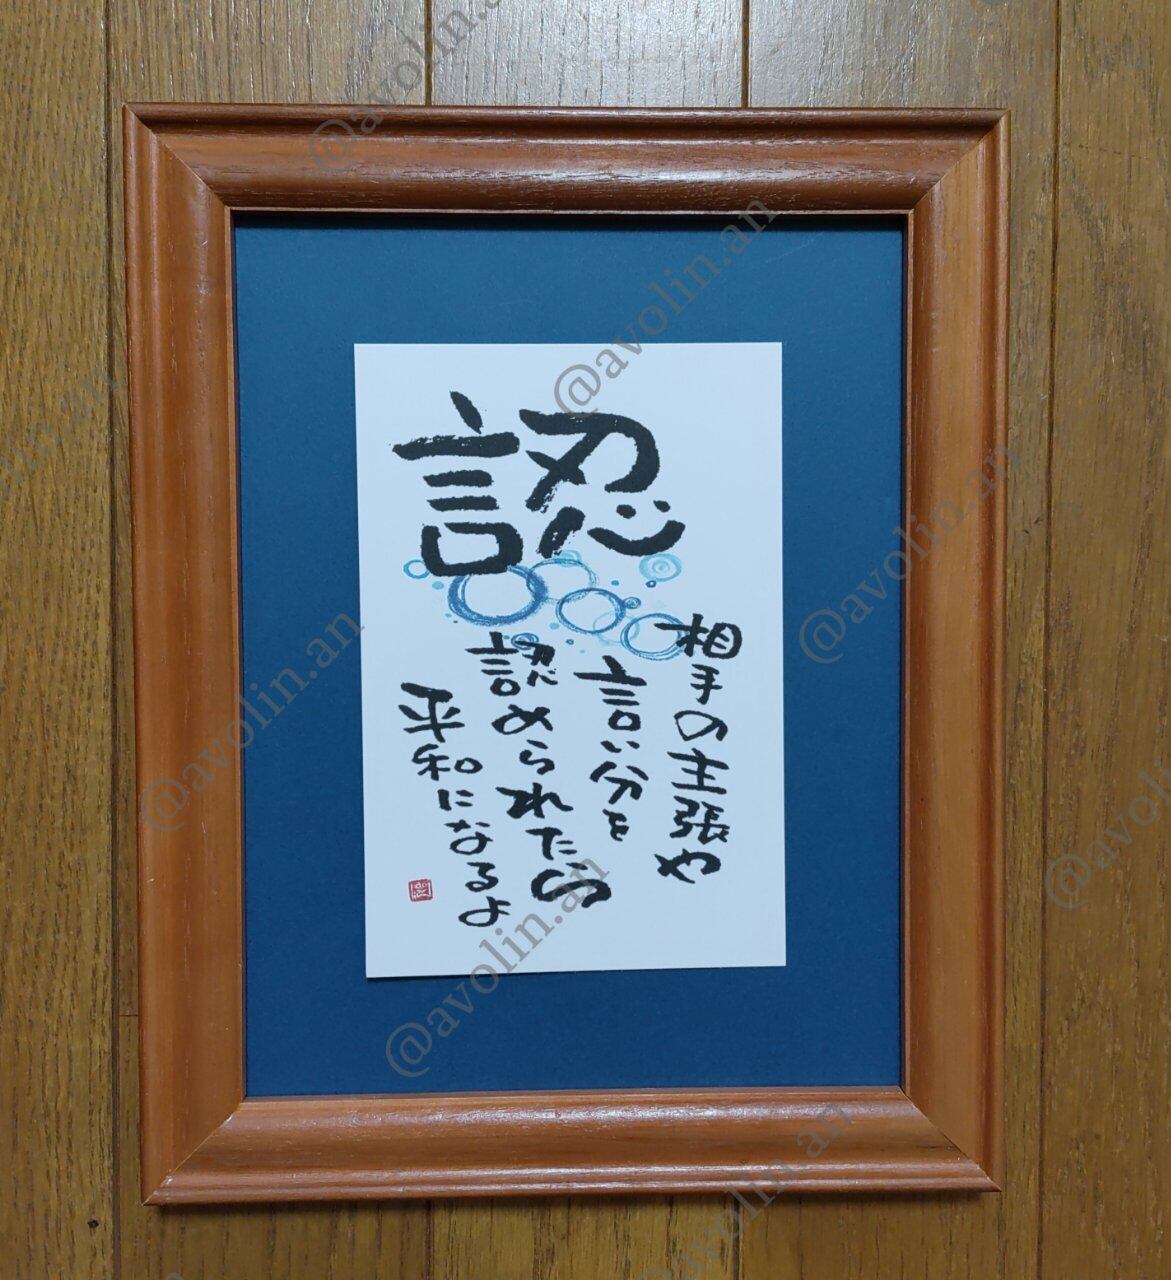 認
相手の主張や
言い分を
認められたら
平和になるよ
@avolin.an
@avolin.an
@avolin.an
@avolin.an
@avolin.an
@avolin.an
@avolin.an